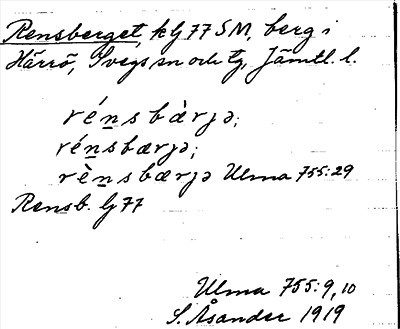 Rensberget, k Lj 77 SM, berg i
Härrö, Svegs sn och tg, Jämtl. l.
rénsbàrjə;
rénsbærjə;
rènsbærjə Ulma 755:29
Rensb. Lj 77
Ulma 755:9,10
S. Åsander 1919